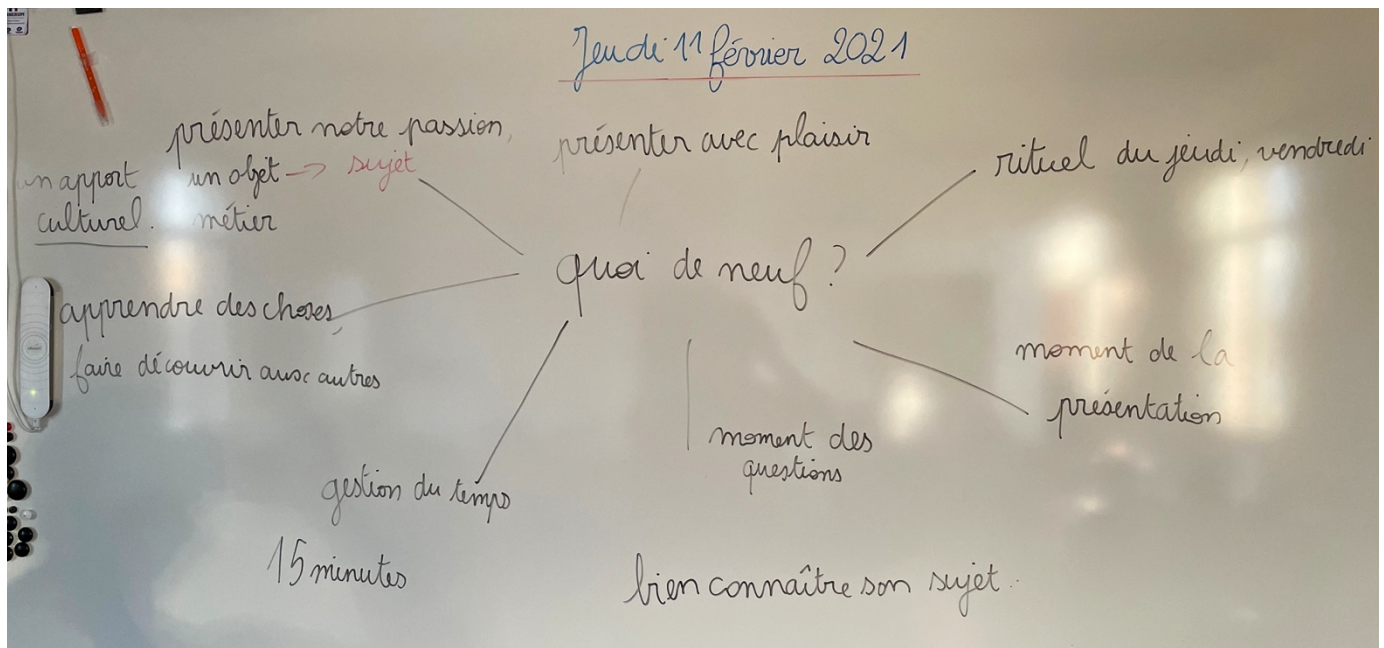 Jeudi 11 février 2021
présenter notre passion,
un objet → sujet
métier
un apport
culturel.
présenter avec plaisir
rituel du jeudi, vendredi
quoi de neuf ?
apprendre des choses,
faire découvrir aux autres
moment de la
présentation
moment des
questions
gestion du temps
15 minutes
bien connaître son sujet.